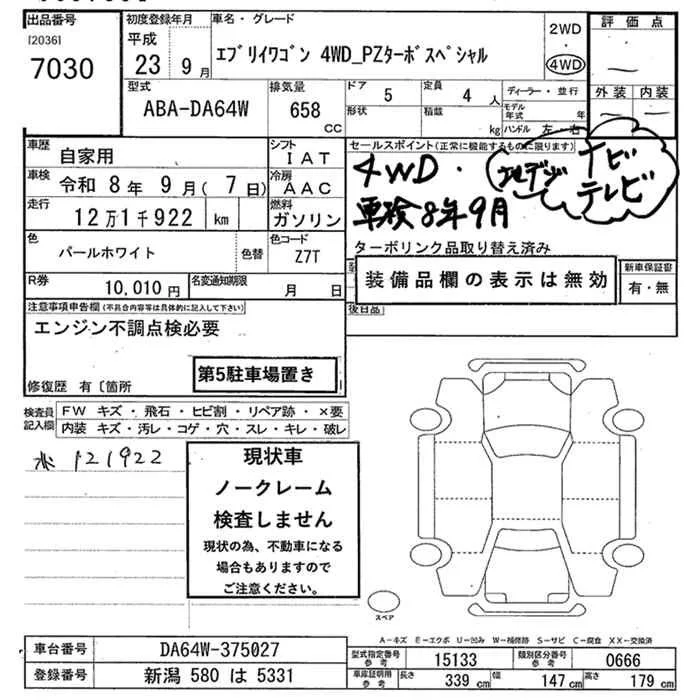 出品番号
[2036]
7030
初度登録年月
平成
23 9月
車名・グレード
エブリイワゴン 4WD_PZターボスペシャル
2WD
・
4WD
評価点
—
外装 内装
— —
型式
ABA-DA64W
排気量
658
CC
ドア
5
定員
4 人
形状
積載
kg
ディーラー・並行
モデル年式 年
ハンドル 左・右
車歴
自家用
シフト
IAT
車検
令和 8年 9月( 7日)
冷房
AAC
走行
12万1千922 km
燃料
ガソリン
色
パールホワイト
色替
色コード
Z7T
R券
10,010円
名変通知期限
月 日
セールスポイント(正常に機能するものに限ります)
4WD・
地デジ
ナビ
テレビ
車検8年9月
ターボリンク品取り替え済み
装備品欄の表示は無効
新車保証書
有・無
後日品」
注意事項申告欄(不具合内容等は具体的に記入して下さい)
エンジン不調点検必要
第5駐車場置き
修復歴 有〔箇所
検査員記入欄
FW キズ・飛石・ヒビ割・リペア跡・×要
内装 キズ・汚レ・コゲ・穴・スレ・キレ・破レ
121922
現状車
ノークレーム
検査しません
現状の為、不動車になる
場合もありますので
ご注意ください。
スペア
A-キズ E-エクボ U-凹み W-補修跡 S-サビ C-腐食 XX-交換済
車台番号
DA64W-375027
登録番号
新潟 580 は 5331
型式指定番号
参考
15133
類別区分番号
参考
0666
車庫証明用
参考
長さ
339 cm
幅
147 cm
高さ
179 cm